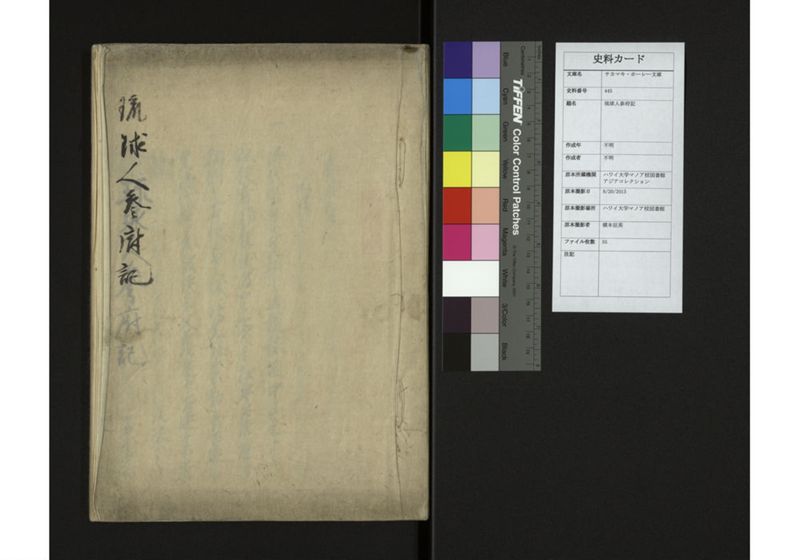 琉球人参府記
史料カード
文庫名 サカマキ・ホーレー文庫
史料番号 445
題名 琉球人参府記
作成年 不明
作成者 不明
原本所蔵機関 ハワイ大学マノア校図書館
アジアコレクション
原本撮影日 8/20/2013
原本撮影場所 ハワイ大学マノア校図書館
原本撮影者
ファイル枚数
注記
TIFFEN Color Control Patches
Blue
Cyan
Green
Yellow
Red
Magenta
White
3/Color
Black
Centimetres